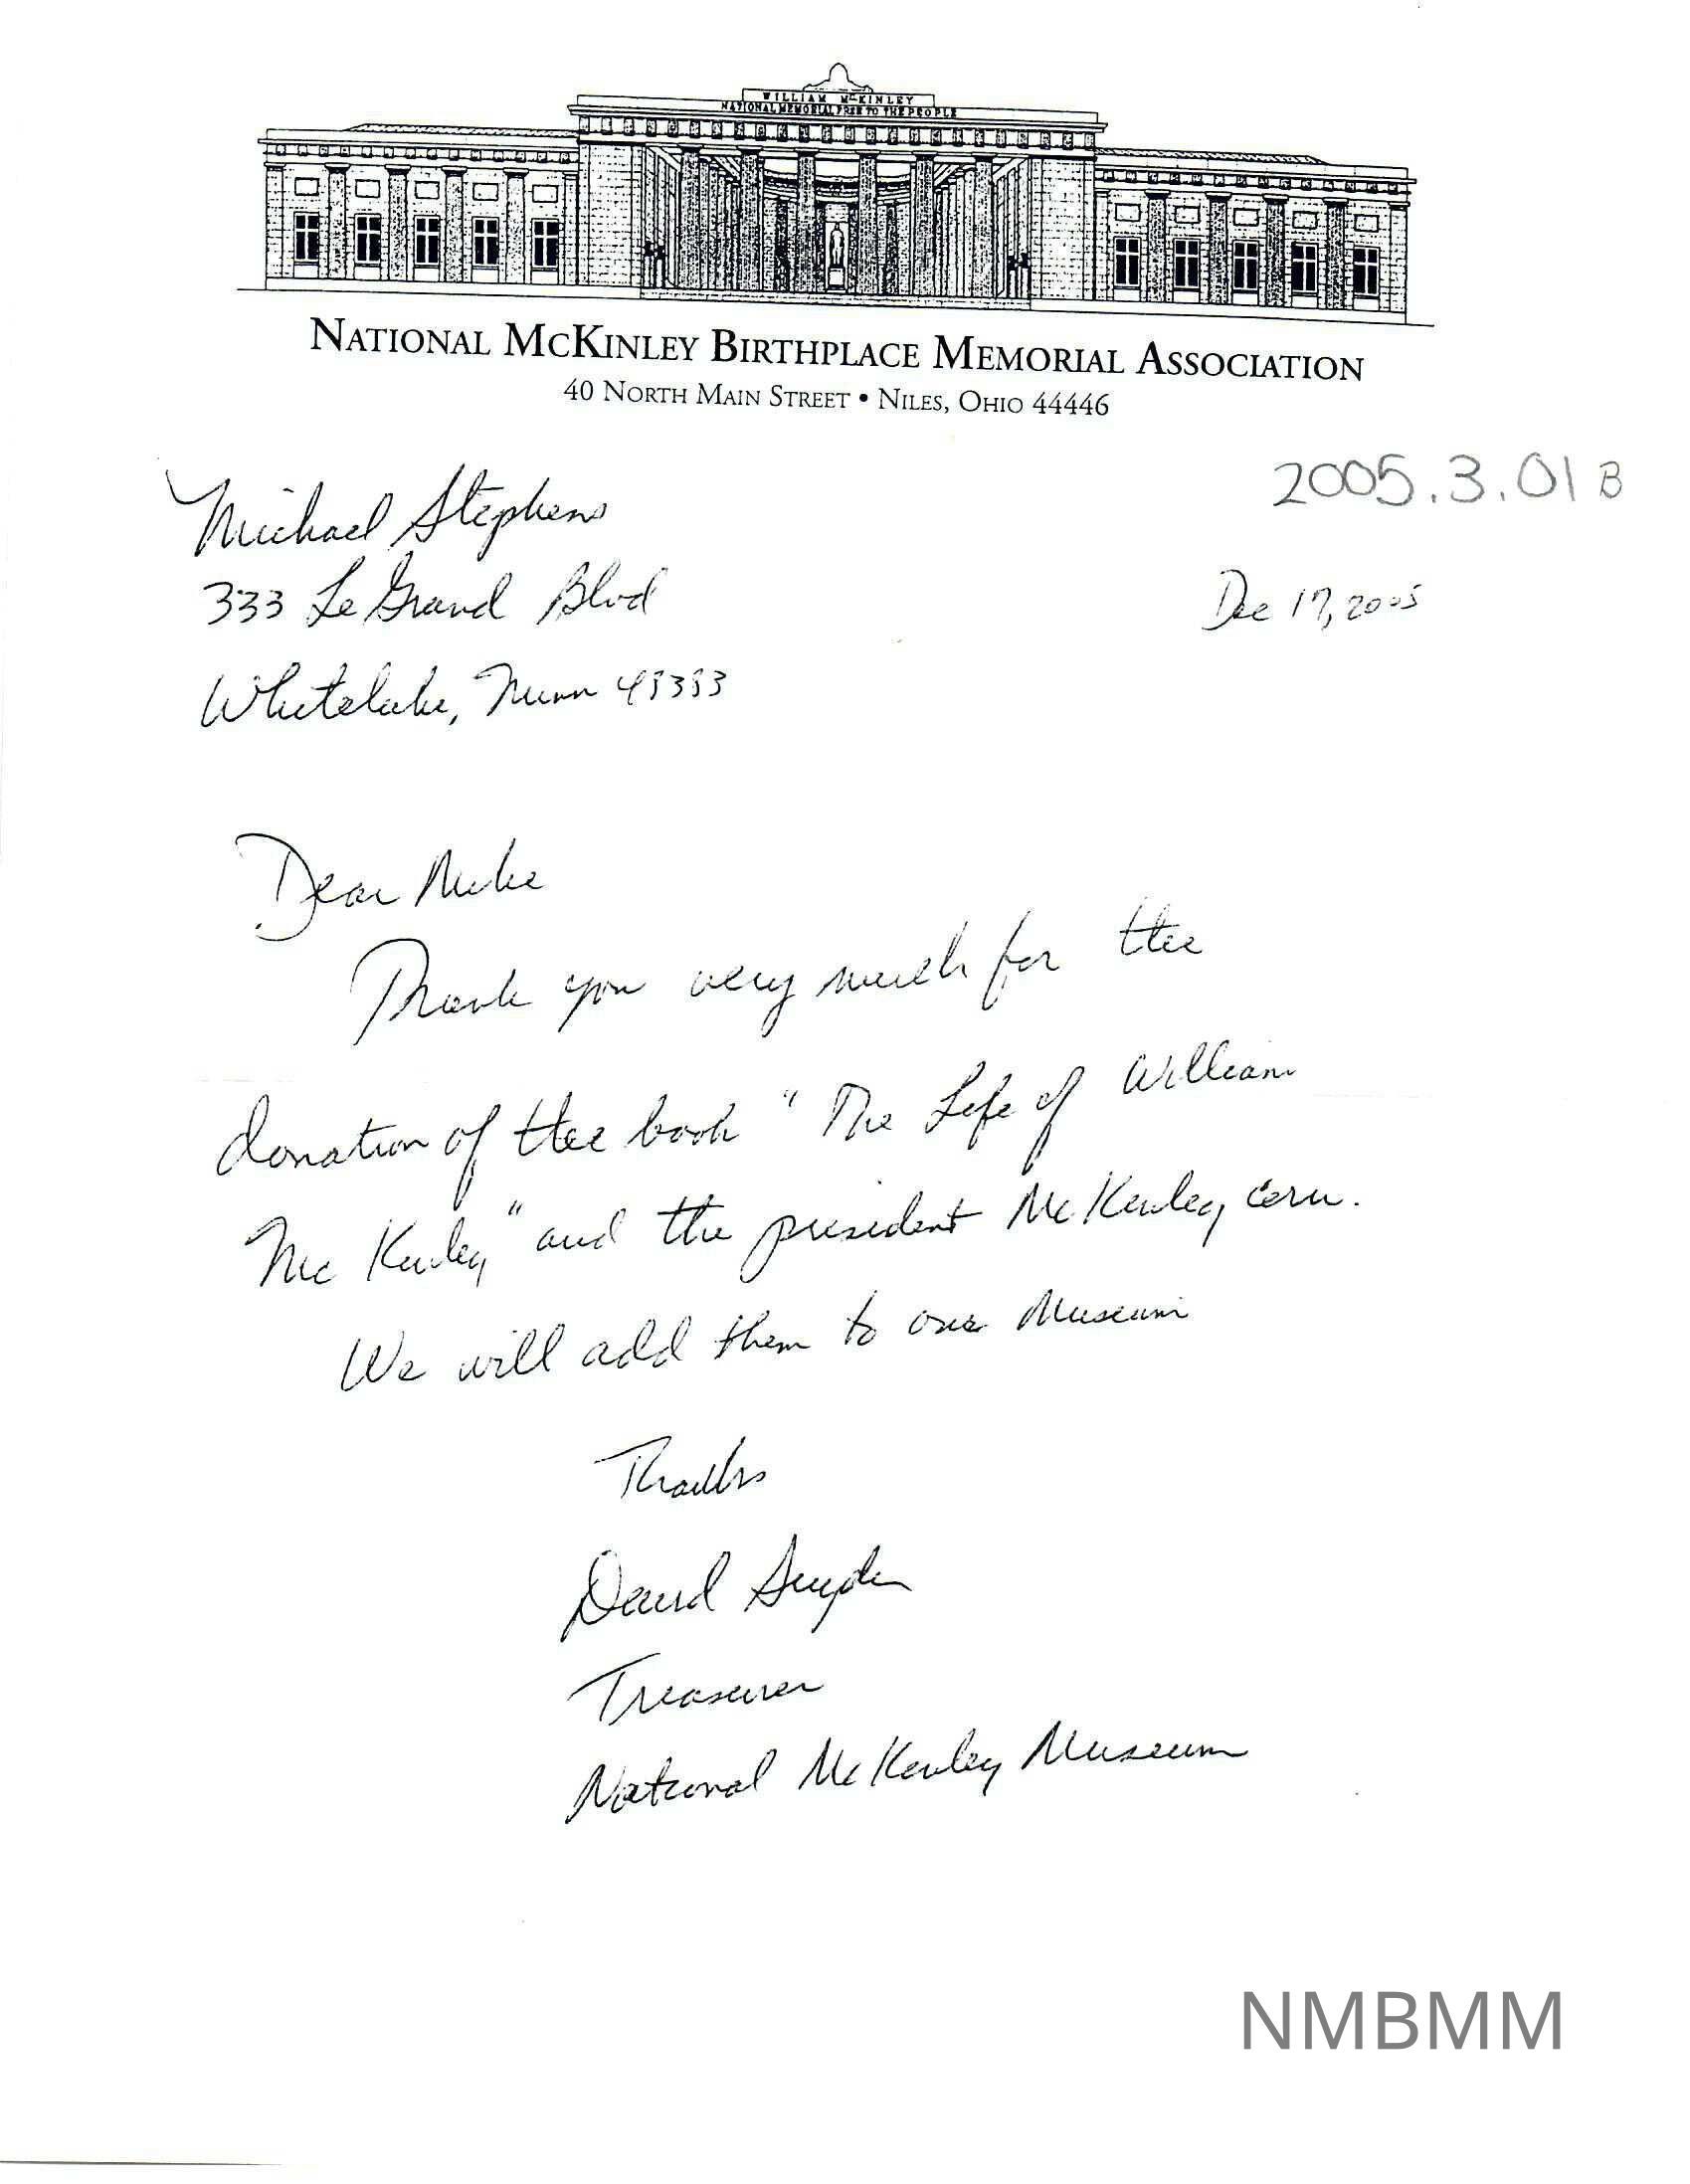 WILLIAM McKINLEY
NATIONAL MEMORIAL FREE TO THE PEOPLE
NATIONAL McKINLEY BIRTHPLACE MEMORIAL ASSOCIATION
40 NORTH MAIN STREET • NILES, OHIO 44446
2005.3.01 B
Michael Stephens
333 Le Grand Blvd
Dec 17, 2005
Whitelake, Minn
Dear Mike
Thank you very much for the
donation of the book "The Life of William
McKinley" and the president McKinley coin.
We will add them to our Museum
Thanks
David Snyder
Treasurer
National McKinley Museum
NMBMM